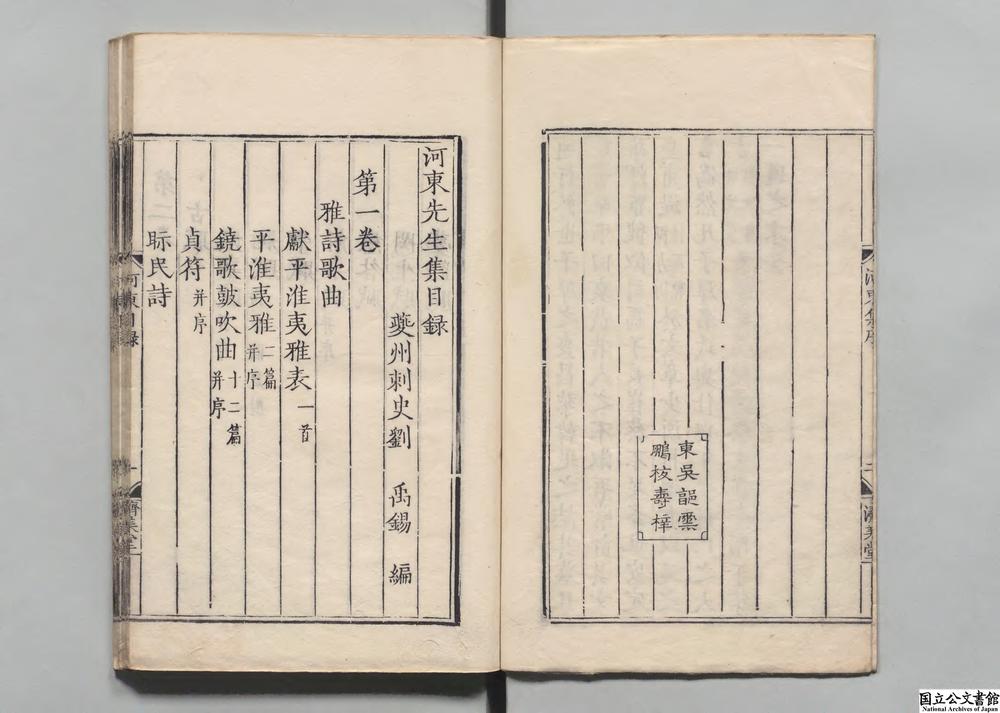 東吳郭雲
鵬校壽梓
河東集序
二
濟美堂
河東先生集目録
夔州刺史劉 禹錫 編
第一卷
雅詩歌曲
獻平淮夷雅表一首
平淮夷雅二篇并序
鐃歌鼓吹曲十二篇并序
貞符并序
眎民詩
河東目録
一
濟美堂
国立公文書館
National Archives of Japan